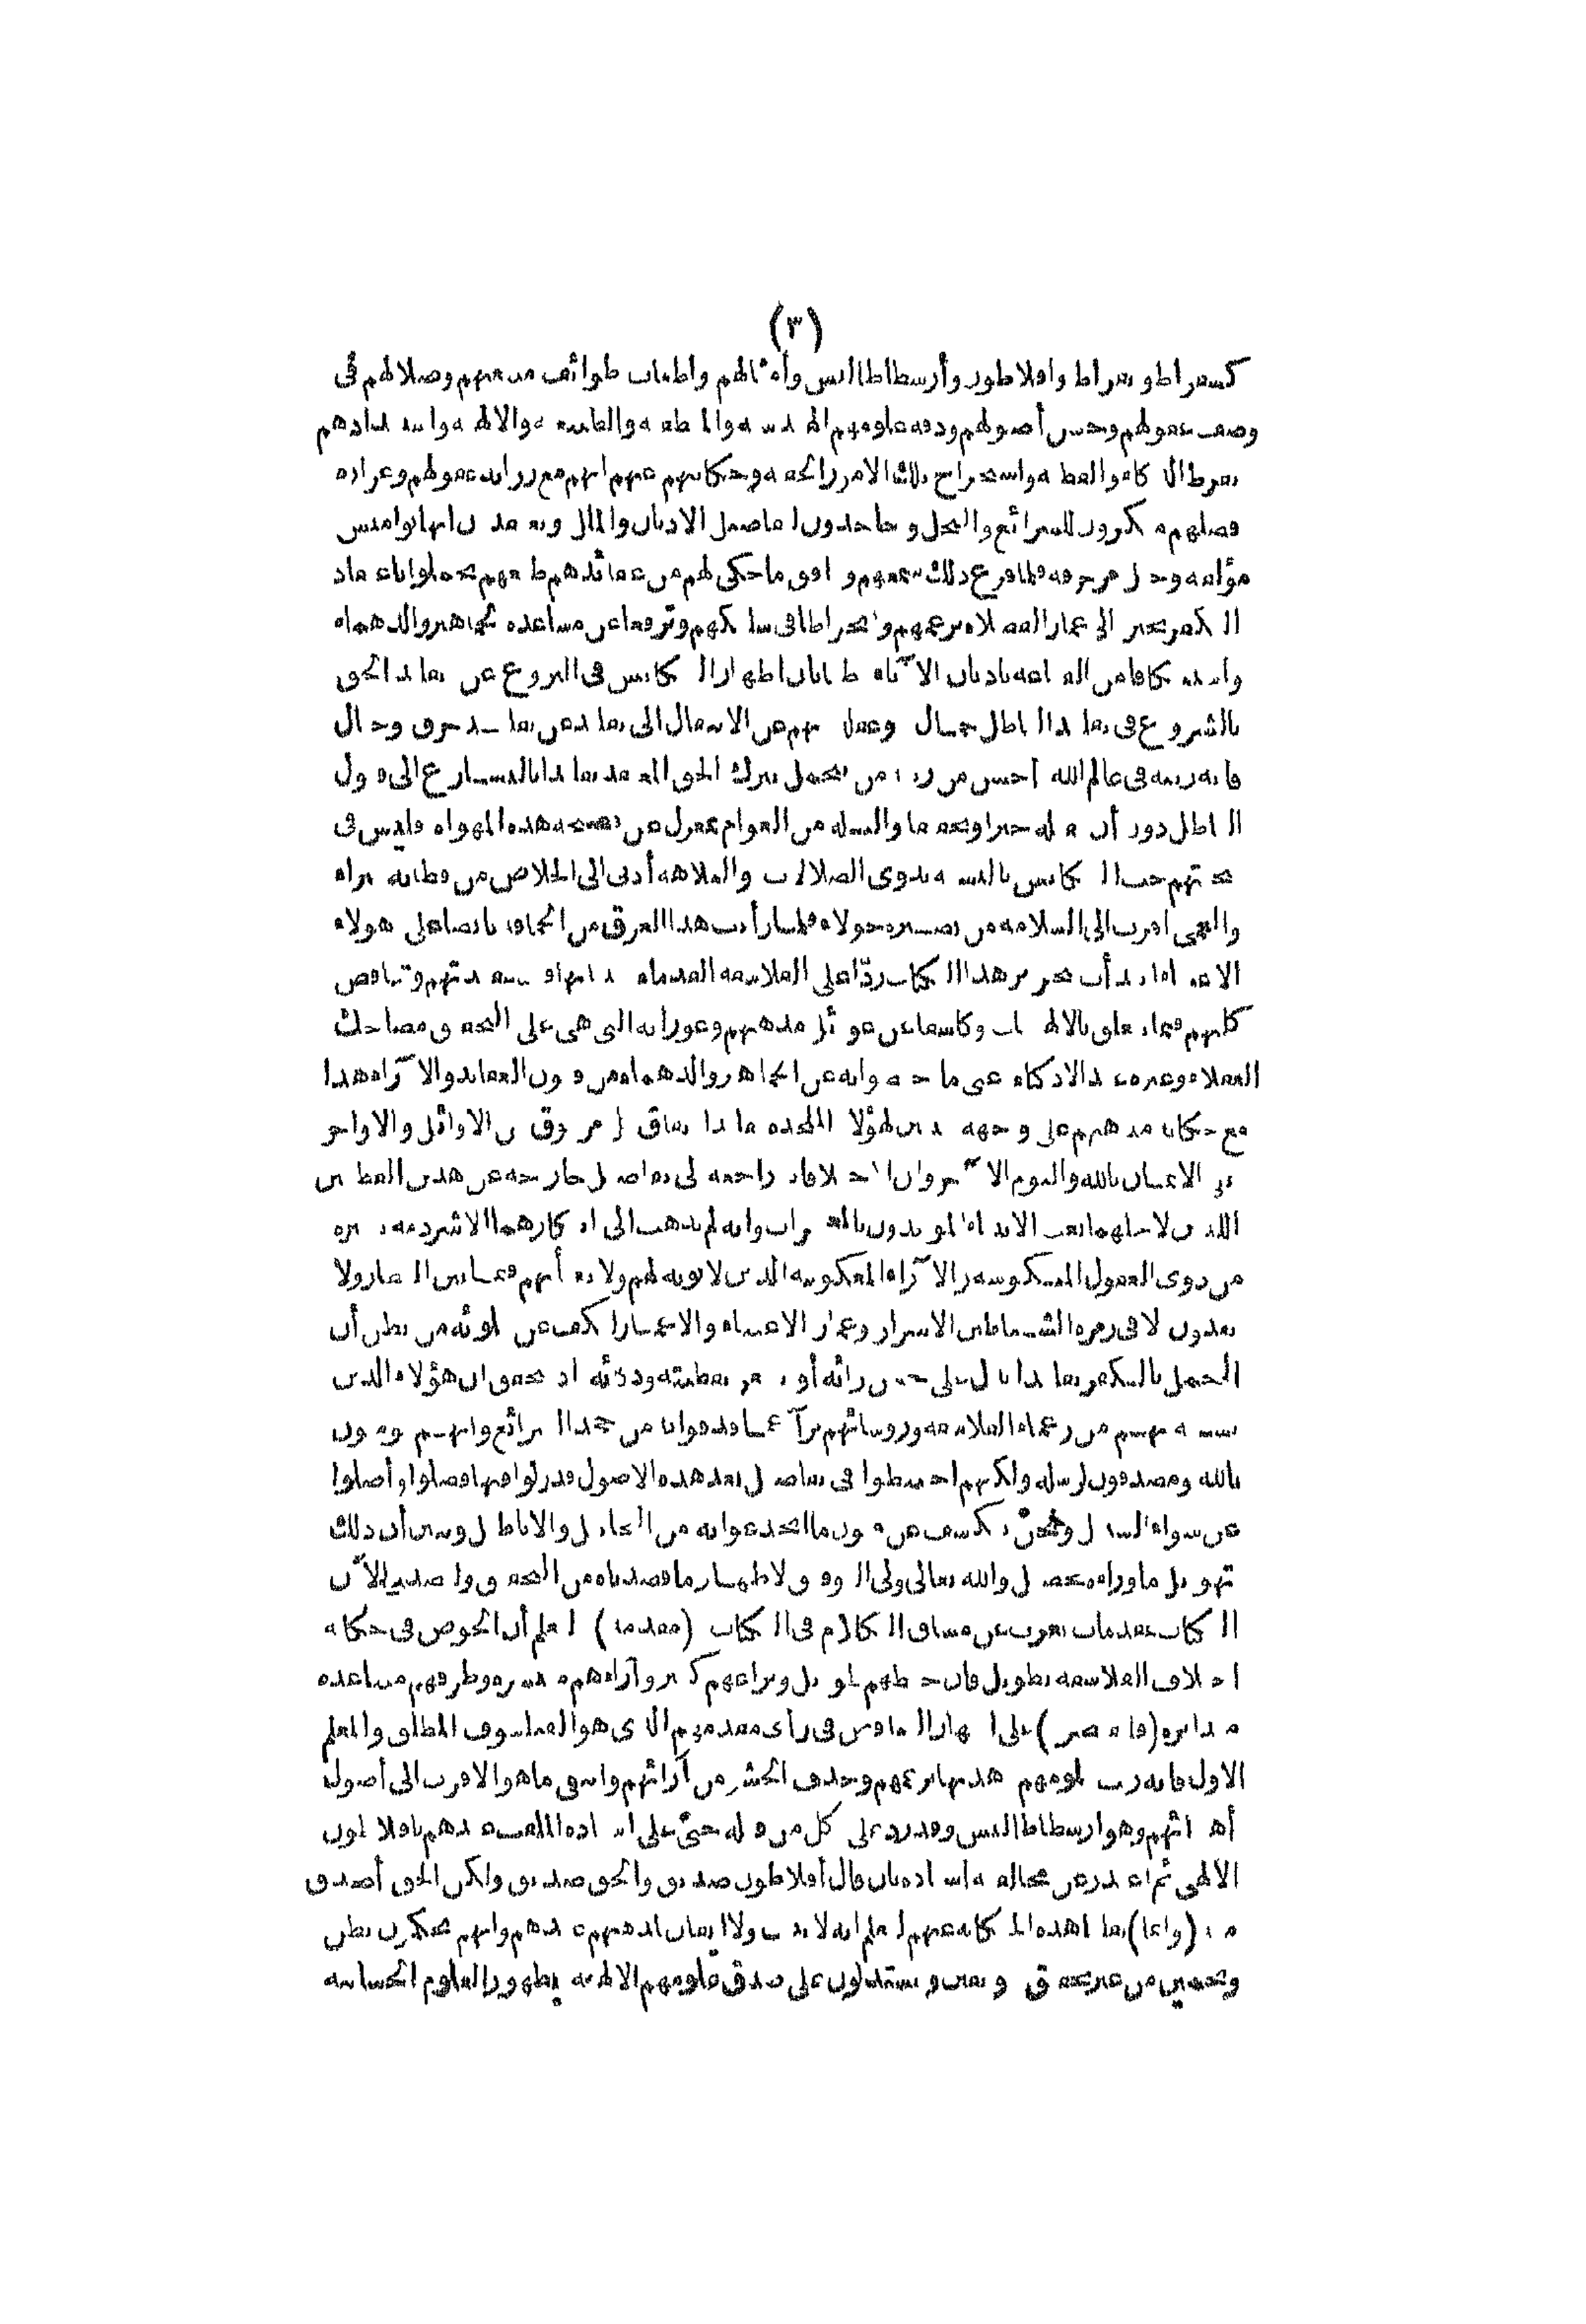 (٣)
كسقراط وبقراط وافلاطون وأرسطاطاليس وأمثالهم واطناب طوائف من متبعيهم وضلالهم فى
وصف عقولهم وحسن أصولهم ودقة علومهم الهندسية والمنطقية والطبيعية والالهية واستبدادهم
بفرط الذكاء والفطنة واستخراج تلك الامور الخفية وحكايتهم عنهم انهم مع رزانة عقولهم وغزارة
فضلهم منكرون للشرائع والنحل وجاحدون لتفاصيل الاديان والملل ومعتقدون انها نواميس
مؤلفة وحيل مزخرفة فلما قرع ذلك سمعهم ووافق ما حكى لهم من عقائدهم طبعهم تجملوا باعتقاد
الكفر تحيزا الى غمار الفضلاء بزعمهم وانخراطا فى سلكهم وترفعا عن مساعدة الجماهير والدهماء
واستنكافا من القناعة باديان الآباء ظنا بان اظهار التكايس فى النزوع عن تقليد الحق
بالشروع فى تقليد الباطل جمال وغفلة منهم عن الانتقال الى تقليد عن تقليد خرق وخبال
فاية رتبة فى عالم الله أخس من رتبة من يتجمل بترك الحق المعتقد تقليدا بالتسارع الى قبول
الباطل دون أن يقبله خبرا وتحقيقا والبله من العوام بمعزل عن فضيحة هذه المهواة فليس فى
سجيتهم حب التكايس بالتشبه بذوى الضلالات والبلاهة أدنى الى الخلاص من فطانة بتراء
والعمى اقرب الى السلامة من بصيرة حولاء فلما رأيت هذا العرق من الحماقة نابضا على هؤلاء
الاغبياء ابتدأت بتحرير هذا الكتاب ردّا على الفلاسفة القدماء مبينا تهافت عقيدتهم وتناقض
كلمتهم فيما يتعلق بالالهيات وكاشفا عن غوائل مذهبهم وعوراته التى هى على التحقيق مضاحك
العقلاء وعبرة عند الاذكياء أعنى ما اختصوا به عن الجماهير والدهماء من فنون العقايد والآراء هذا
مع حكاية مذهبهم على وجهه ليتبين لهؤلاء الملحدة تقليدا اتفاق كل مرموق من الاوائل والاواخر
على الايمان بالله واليوم الآخر وان الاختلافات راجعة الى تفاصيل خارجة عن هذين القطبين
اللذين لاجلهما بعث الانبياء المؤيدون بالمعجزات وانه لم يذهب الى انكارهما الا شرذمة يسيرة
من ذوى العقول المنكوسة والآراء المعكوسة الذين لا يؤبه لهم ولا يعبأ بهم فيما بين النظار ولا
يعدون الا فى زمرة الشياطين الاشرار وغمار الاغبياء والاغمار ليكف عن غلوائه من يظن أن
التجمل بالكفر تقليدا يدل على حسن رأيه أو يشعر بفطنته وذكائه اذ يتحقق ان هؤلاء الذين
يتشبه بهم من زعماء الفلاسفة ورؤسائهم برآء عما قذفوا به من جحد الشرائع وانهم مؤمنون
بالله ومصدقون لرسله ولكنهم اختبطوا فى تفاصيل بعد هذه الاصول قد زلوا فيها فضلوا وأضلوا
عن سواء السبيل ونحن نكشف عن فنون ما انخدعوا به من التخاييل والاباطيل ونبين أن ذلك
تهويل ما وراءه تحصيل والله تعالى ولى التوفيق لاظهار ما قصدناه من التحقيق ولنصدر الآن
الكتاب بمقدمات تعرب عن مساق الكلام فى الكتاب (مقدمة) ليعلم أن الخوض فى حكاية
اختلاف الفلاسفة تطويل فان خبطهم طويل ونزاعهم كثير وآراءهم منتشرة وطرقهم متباعدة
متدابرة (فلنقتصر) على اظهار التناقض فى رأى مقدمهم الذى هو الفيلسوف المطلق والمعلم
الاول فانه رتب علومهم وهذبها بزعمهم وحذف الحشو من آرائهم وانتقى ما هو الاقرب الى أصول
أهوائهم وهو ارسطاطاليس وقد رد على كل من قبله حتى على استاذه الملقب عندهم بافلاطون
الالهى ثم اعتذر عن مخالفته استاذه بان قال أفلاطون صديق والحق صديق ولكن الحق أصدق
منه (وانما) نقلنا هذه الحكاية عنهم ليعلم انه لا تثبت ولا ايقان لمذهبهم عندهم وانهم يحكمون بظن
وتخمين من غير تحقيق ويقين ويستدلون على صدق علومهم الالهية بظهور العلوم الحسابية